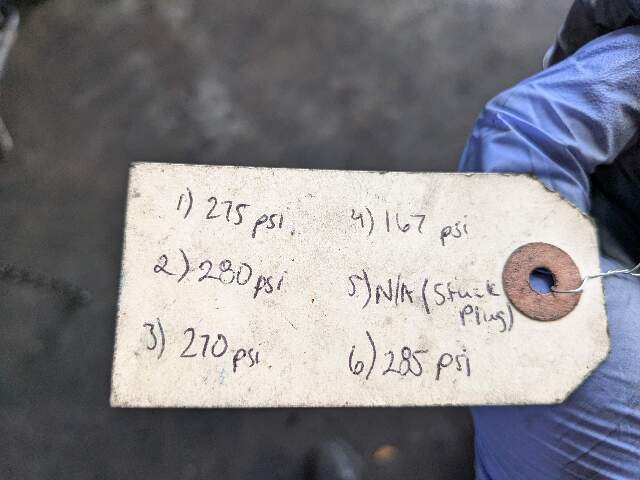 1) 275 psi
2) 280 psi
3) 270 psi
4) 167 psi
5) N/A (Stuck
Plug)
6) 285 psi